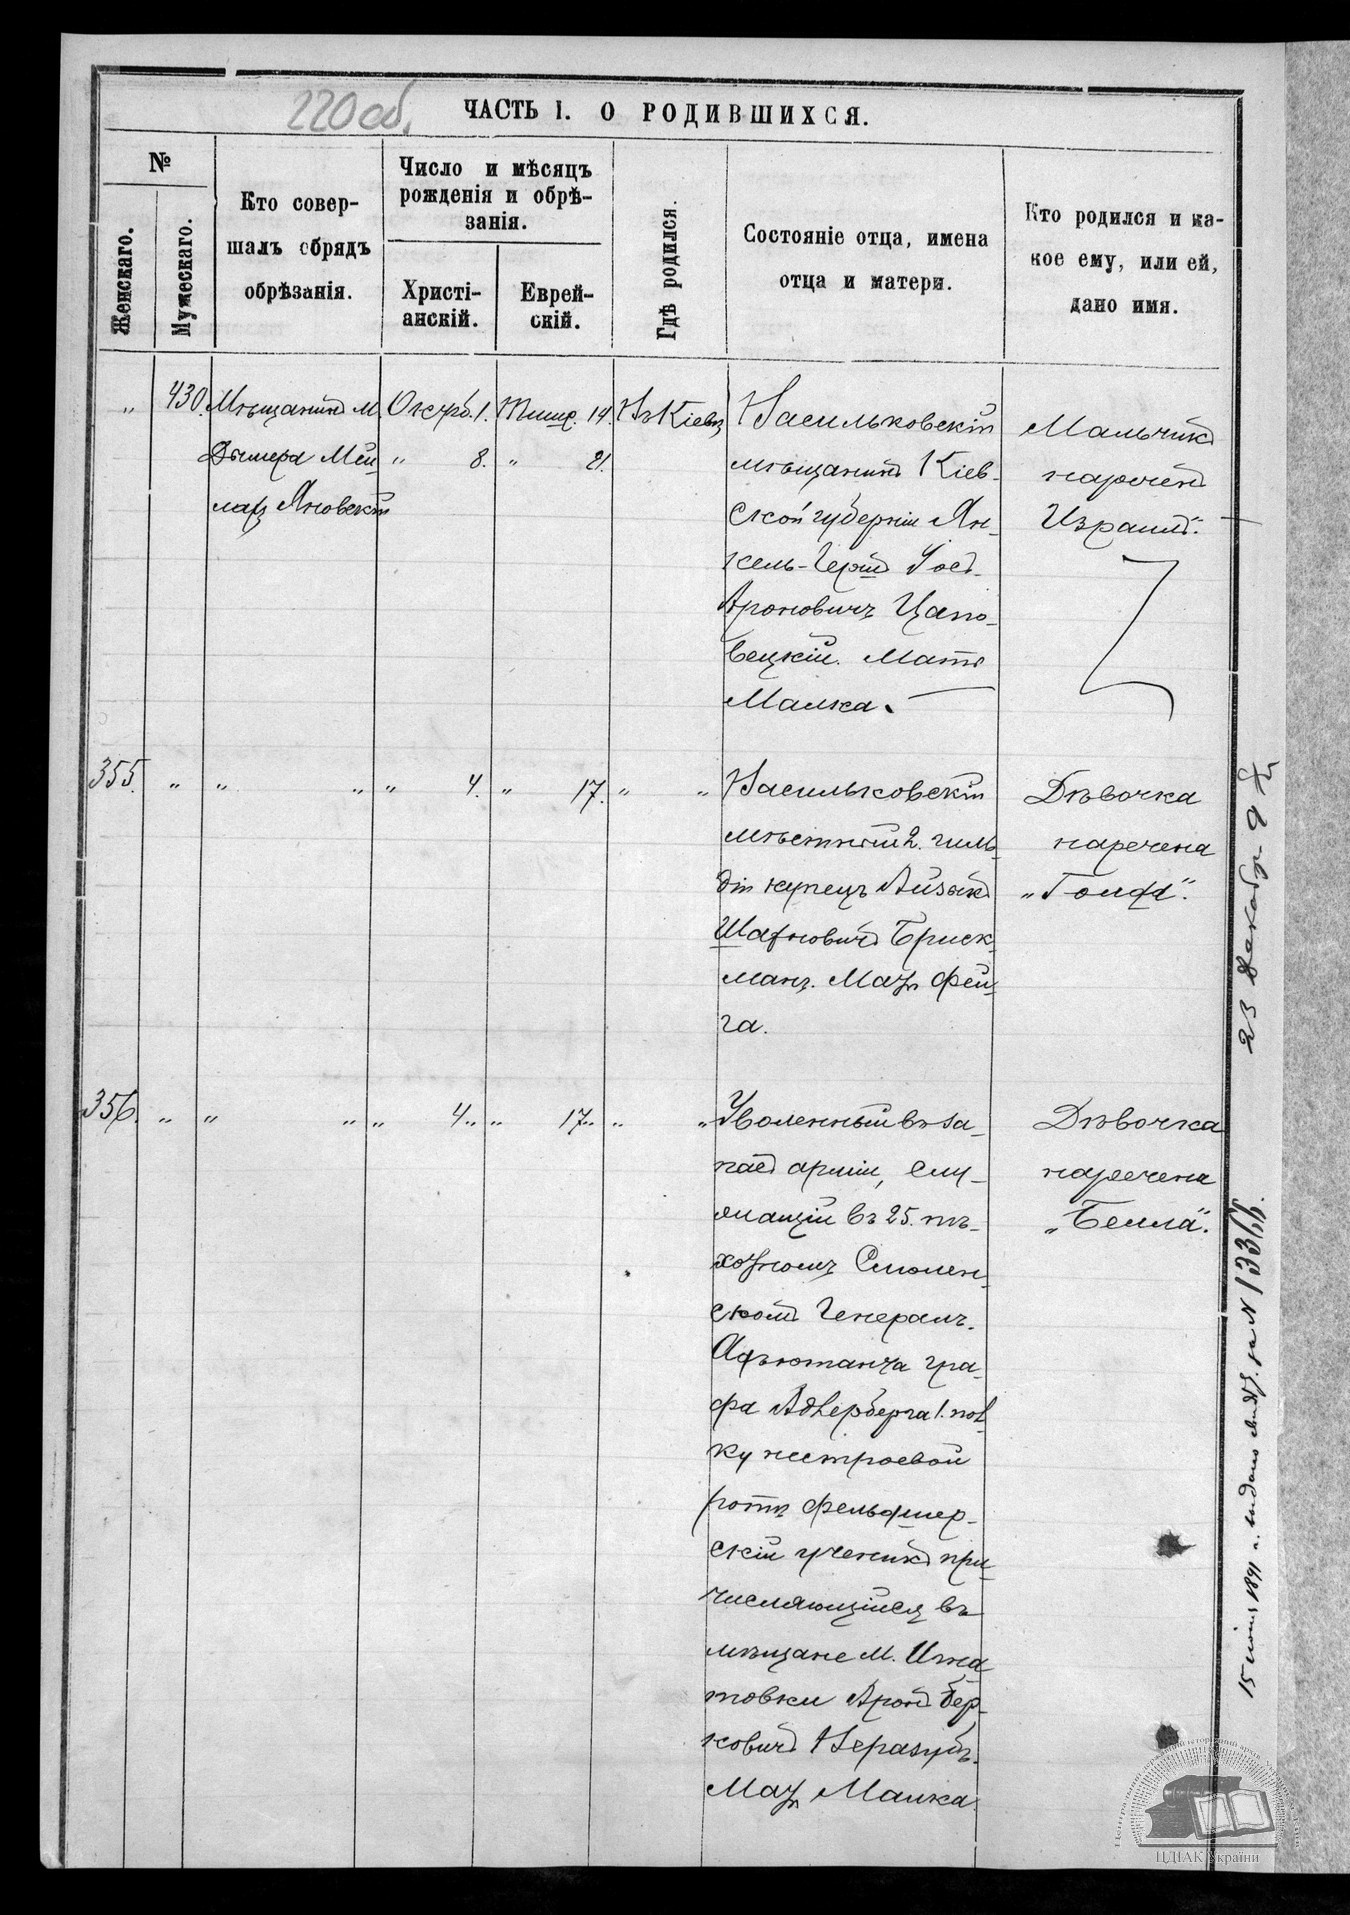 220 об.
ЧАСТЬ I. О РОДИВШИХСЯ.
№
Женскаго.
Мужескаго.
Кто совер-
шалъ обрядъ
обрѣзанія.
Число и мѣсяцъ
рожденія и обрѣ-
занія.
Христі-
анскій.
Еврей-
скій.
Гдѣ родился.
Состояніе отца, имена
отца и матери.
Кто родился и ка-
кое ему, или ей,
дано имя.
" 430. Мѣщанинъ м. Октяб. 1. Тишр. 14. Въ Кіевѣ
Дымера Мей " 8. " 21.
Яновскій
Васильковскій
мѣщанинъ Кіев-
ской губерніи Ян-
кель-Герш Іос.
Ароновичъ Цапо-
вецкій. Мать
Малка.
Мальчикъ
нареченъ
Израиль".
355. " " " " 4. " 17. " "
Васильковскій
мѣстный 2. гиль-
діи купецъ Айзикъ
Шаѳновичъ Бриск-
манъ. Мать Фей-
га.
Дѣвочка
наречена
"Голда".
356. " " " " 4. " 17. " "
Уволенный въ за-
пасъ арміи, слу-
жащій въ 25. пѣ-
хотномъ Смолен-
скомъ Генералъ-
Адъютанта гра-
фа Адлерберга 1. пол
ку нестроевой
роты фельдшер-
скій ученикъ при-
числяющійся въ
мѣщане м. Игна
товки Аронъ Бер-
ковичъ Неразумъ.
Мать Малка
Дѣвочка
наречена
"Бейла".
23 Декабр. 9
15 1891 г. выдано свид. за № 1336
ЦДІАК України